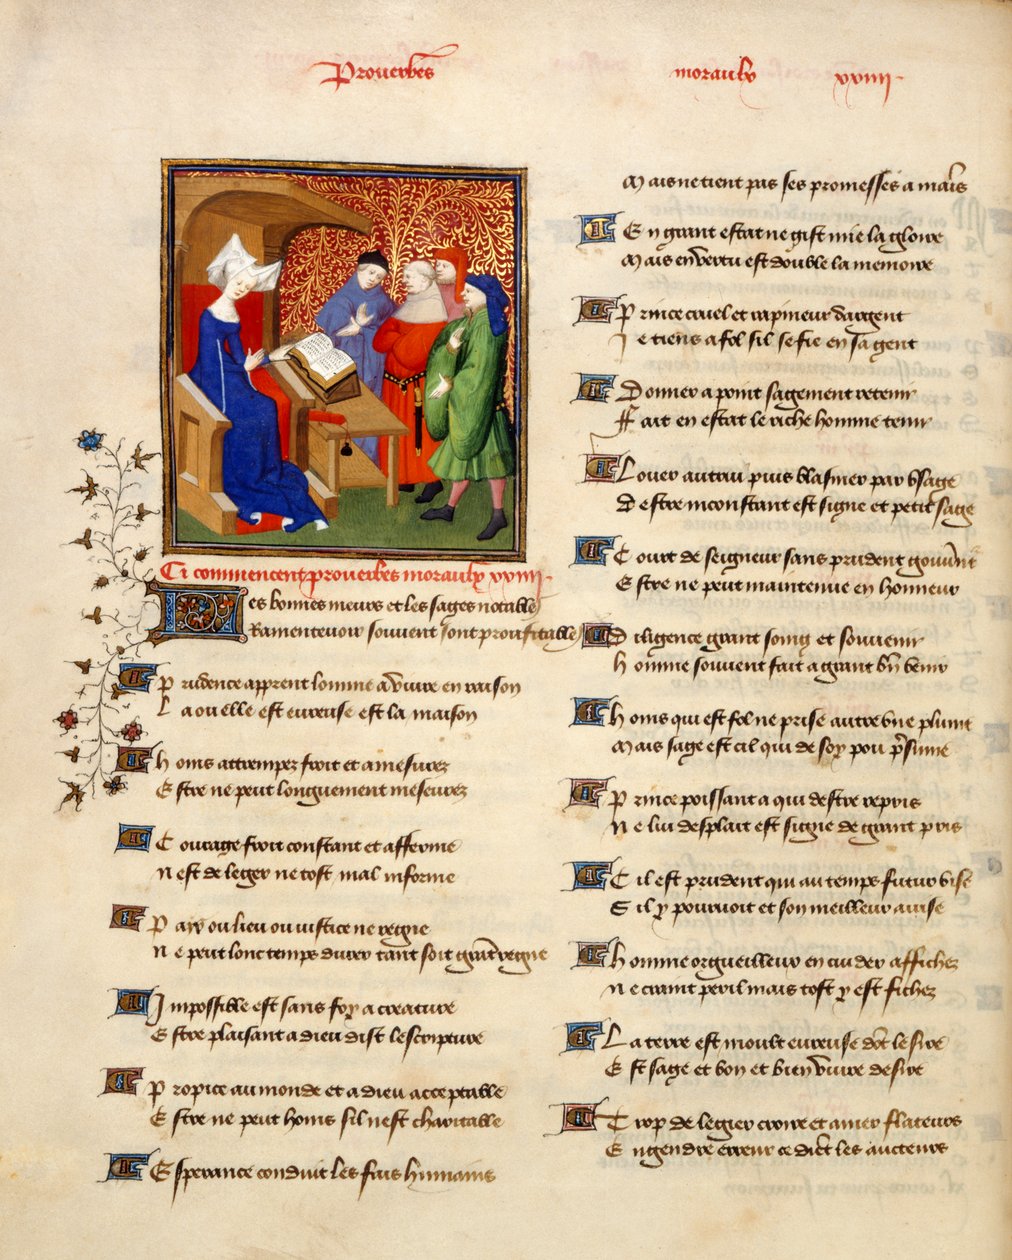 Prouerbes moraulx xxiiii.
Ci commencent prouerbes moraulx xxiiii.
Les bonnes meurs et les sages notables
Ramenteuoir souuent sont proufitables
Prudence apprent lomme a viure en raison
La ou elle est eureuse est la maison
Homs attrempez froit et amesurez
Estre ne peut longuement meseurez
Courage froit constant et afferme
Nest de leger ne tost mal informe
Pays ou lieu ou iustice ne regne
Ne peut lonc temps durer tant soit grant regne
Impossible est sans foy a creature
Estre plaisant a dieu dist lescripture
Propice au monde et a dieu acceptable
Estre ne peut homs sil nest charitable
Esperance conduit les fais humains
Mais ne tient pas ses promesses a mains
En grant estat ne gist mie la gloire
Mais en vertu est double la memoire
Prince cruel et rapineur dargent
Je tiens a fol sil se fie en sa gent
Donner a point sagement retenir
Fait en estat le riche homme tenir
Louer autrui puis blasmer par vsage
Destre inconstant est signe et petit sage
Court de seigneur sans prudent gouuernemt
Estre ne peut maintenue en honneur
Diligence grant soing et souuenir
Homme souuent fait a grant bien venir
Homs qui est fol ne prise autre vne plume
Mais sage est cil qui de soy pou presume
Prince poissant a qui destre repris
Ne lui desplait est signe de grant pris
Cil est prudent qui au temps futur vise
Sil y pouruoit et son meilleur auise
Homme orgueilleux en cuider affichez
Ne craint peril mais tost y est fichez
La terre est moult eureuse dont le sire
Est sage et bon et bien viure desire
Trop de legier croire et amer flateurs
Engendre erreur ce dient les aucteurs